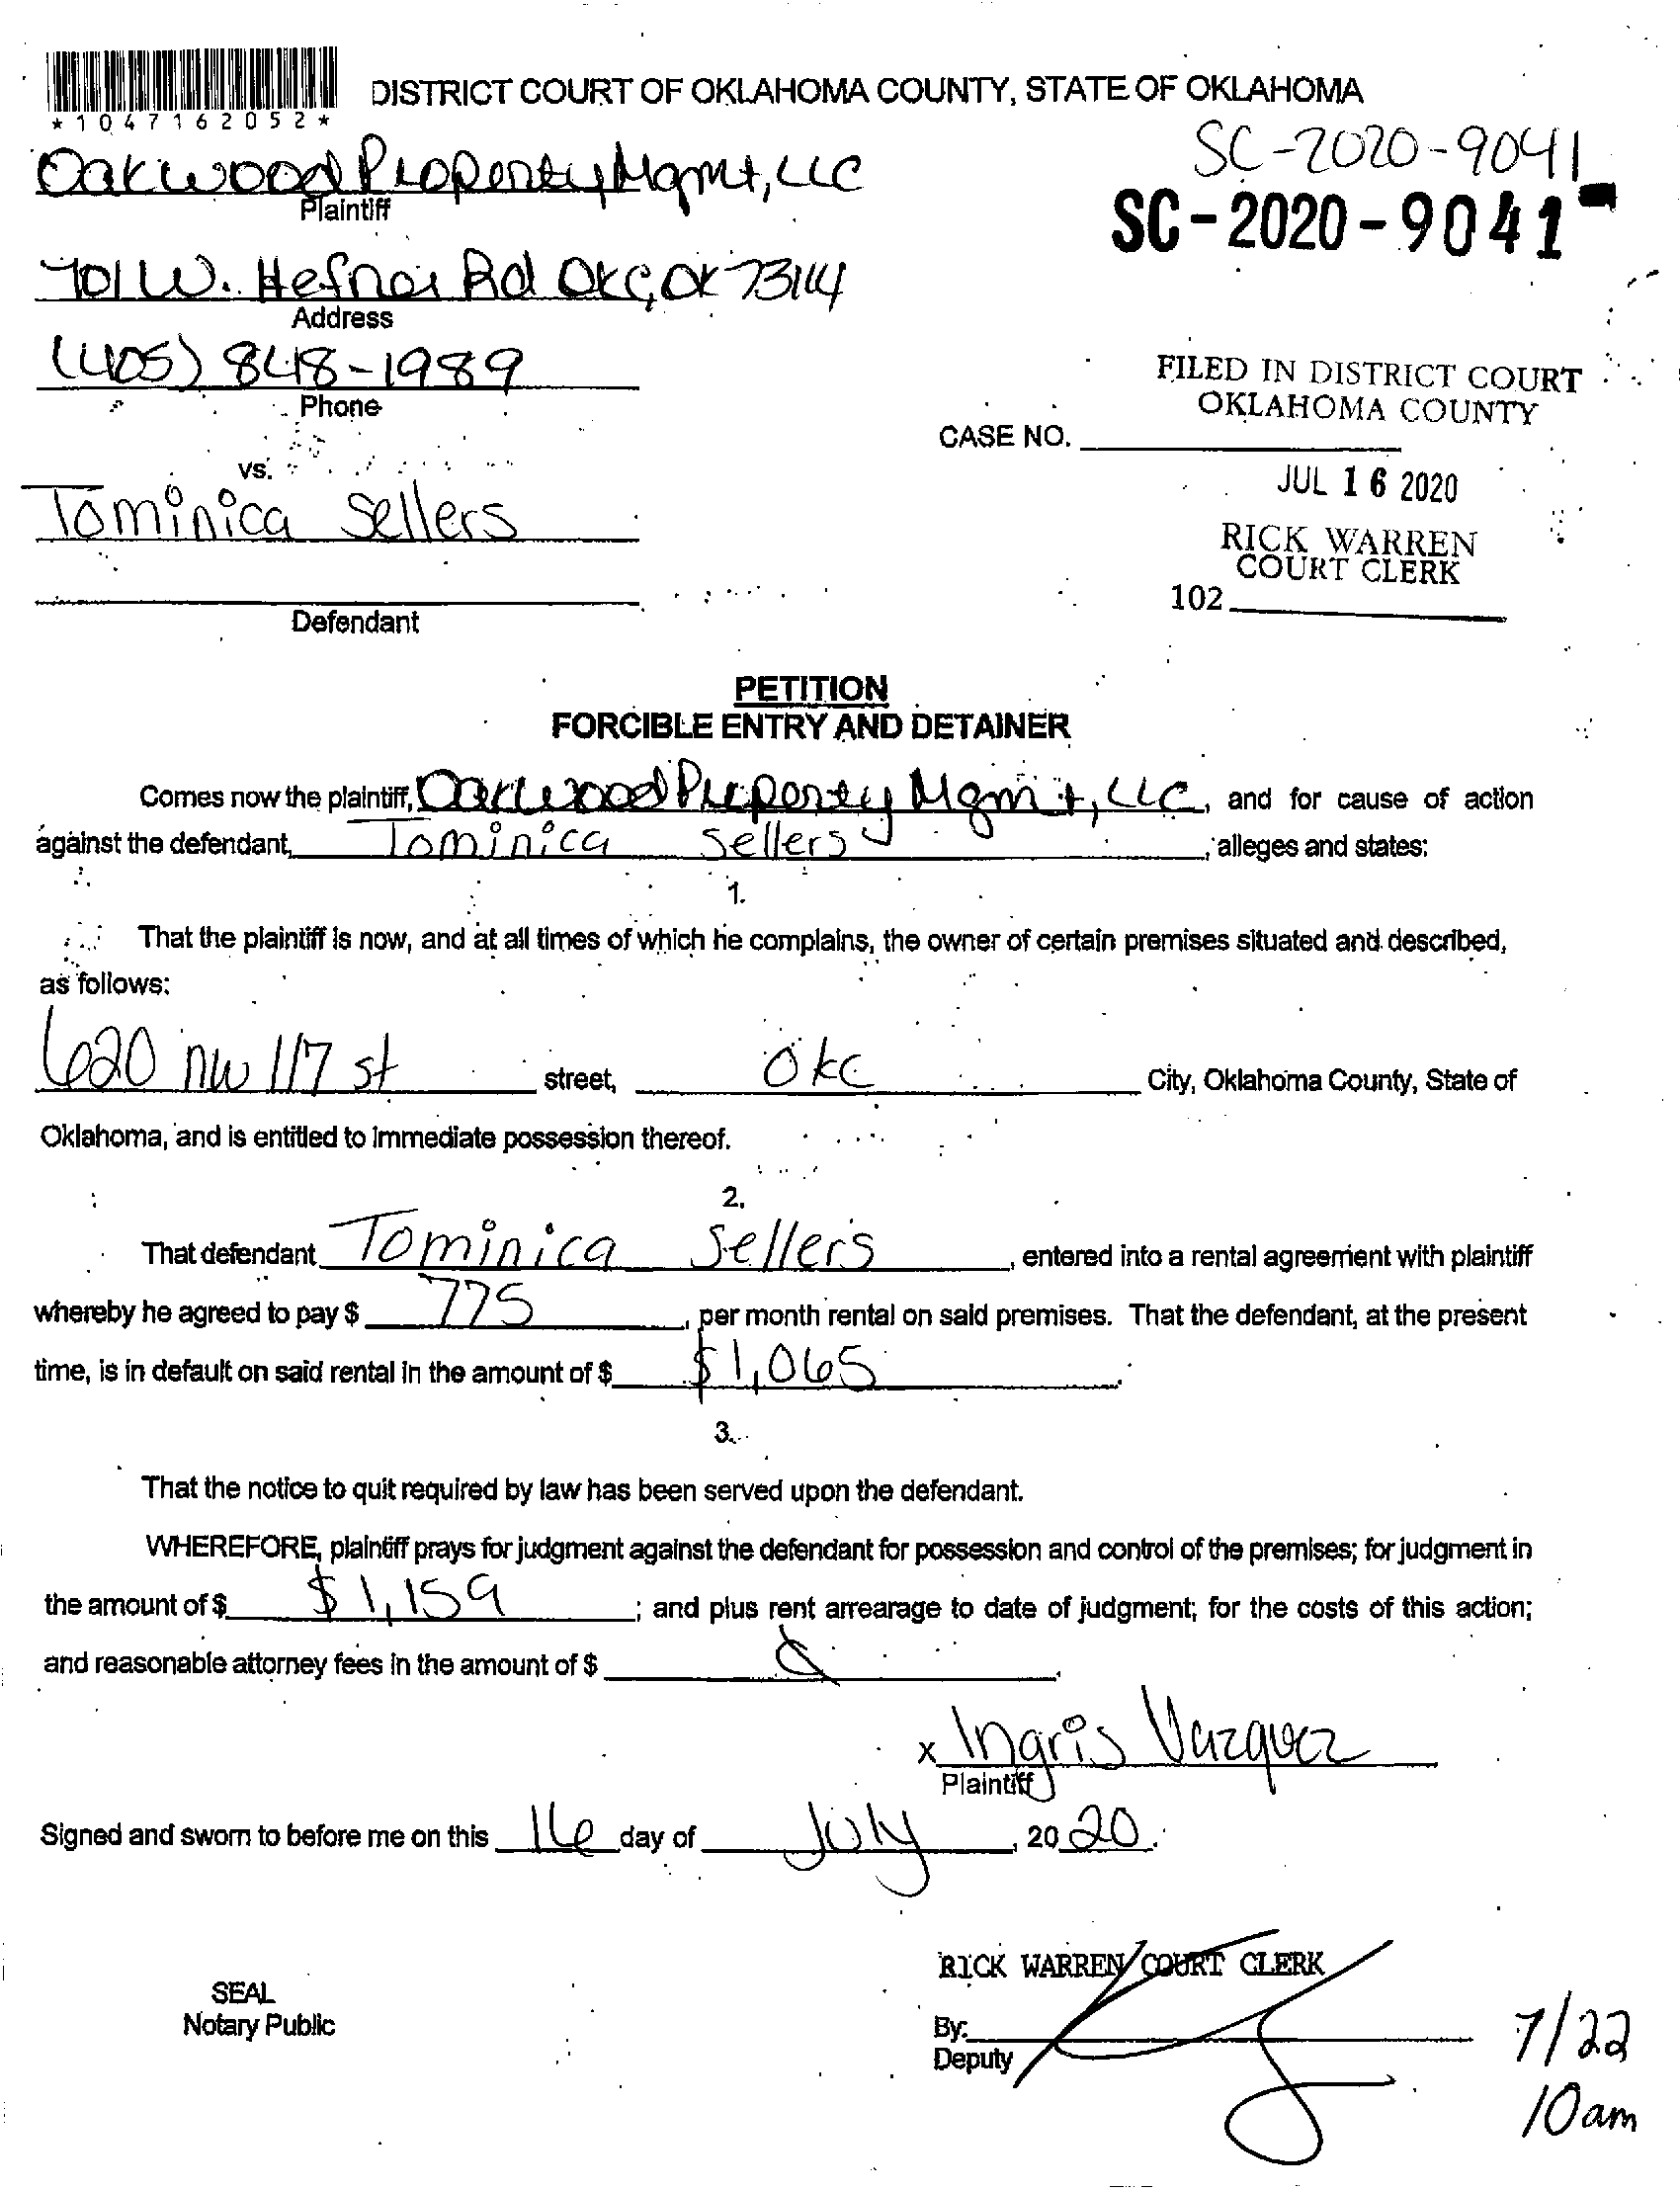 *1047162052*
DISTRICT COURT OF OKLAHOMA COUNTY, STATE OF OKLAHOMA
SC-2020-9041
Oakwood Property Mgmt, LLC
Plaintiff
SC-2020-9041
701 W. Hefner Rd OKC, OK 73114
Address
(405) 848-1989
Phone
FILED IN DISTRICT COURT
OKLAHOMA COUNTY
CASE NO.
vs.
JUL 16 2020
Tominica Sellers
RICK WARREN
COURT CLERK
102
Defendant
PETITION
FORCIBLE ENTRY AND DETAINER
Comes now the plaintiff, Oakwood Property Mgmt, LLC, and for cause of action
against the defendant, Tominica Sellers, alleges and states:
1.
That the plaintiff is now, and at all times of which he complains, the owner of certain premises situated and described,
as follows:
620 nw 117 st street, OKC City, Oklahoma County, State of
Oklahoma, and is entitled to immediate possession thereof.
2.
That defendant Tominica Sellers, entered into a rental agreement with plaintiff
whereby he agreed to pay $ 775, per month rental on said premises. That the defendant, at the present
time, is in default on said rental in the amount of $ $1,065.
3.
That the notice to quit required by law has been served upon the defendant.
WHEREFORE, plaintiff prays for judgment against the defendant for possession and control of the premises; for judgment in
the amount of $ $1,159; and plus rent arrearage to date of judgment; for the costs of this action;
and reasonable attorney fees in the amount of $
x Ingris Vazquez
Plaintiff
Signed and sworn to before me on this 16 day of July, 2020.
RICK WARREN COURT CLERK
SEAL
Notary Public
By:
Deputy
7/22
10am